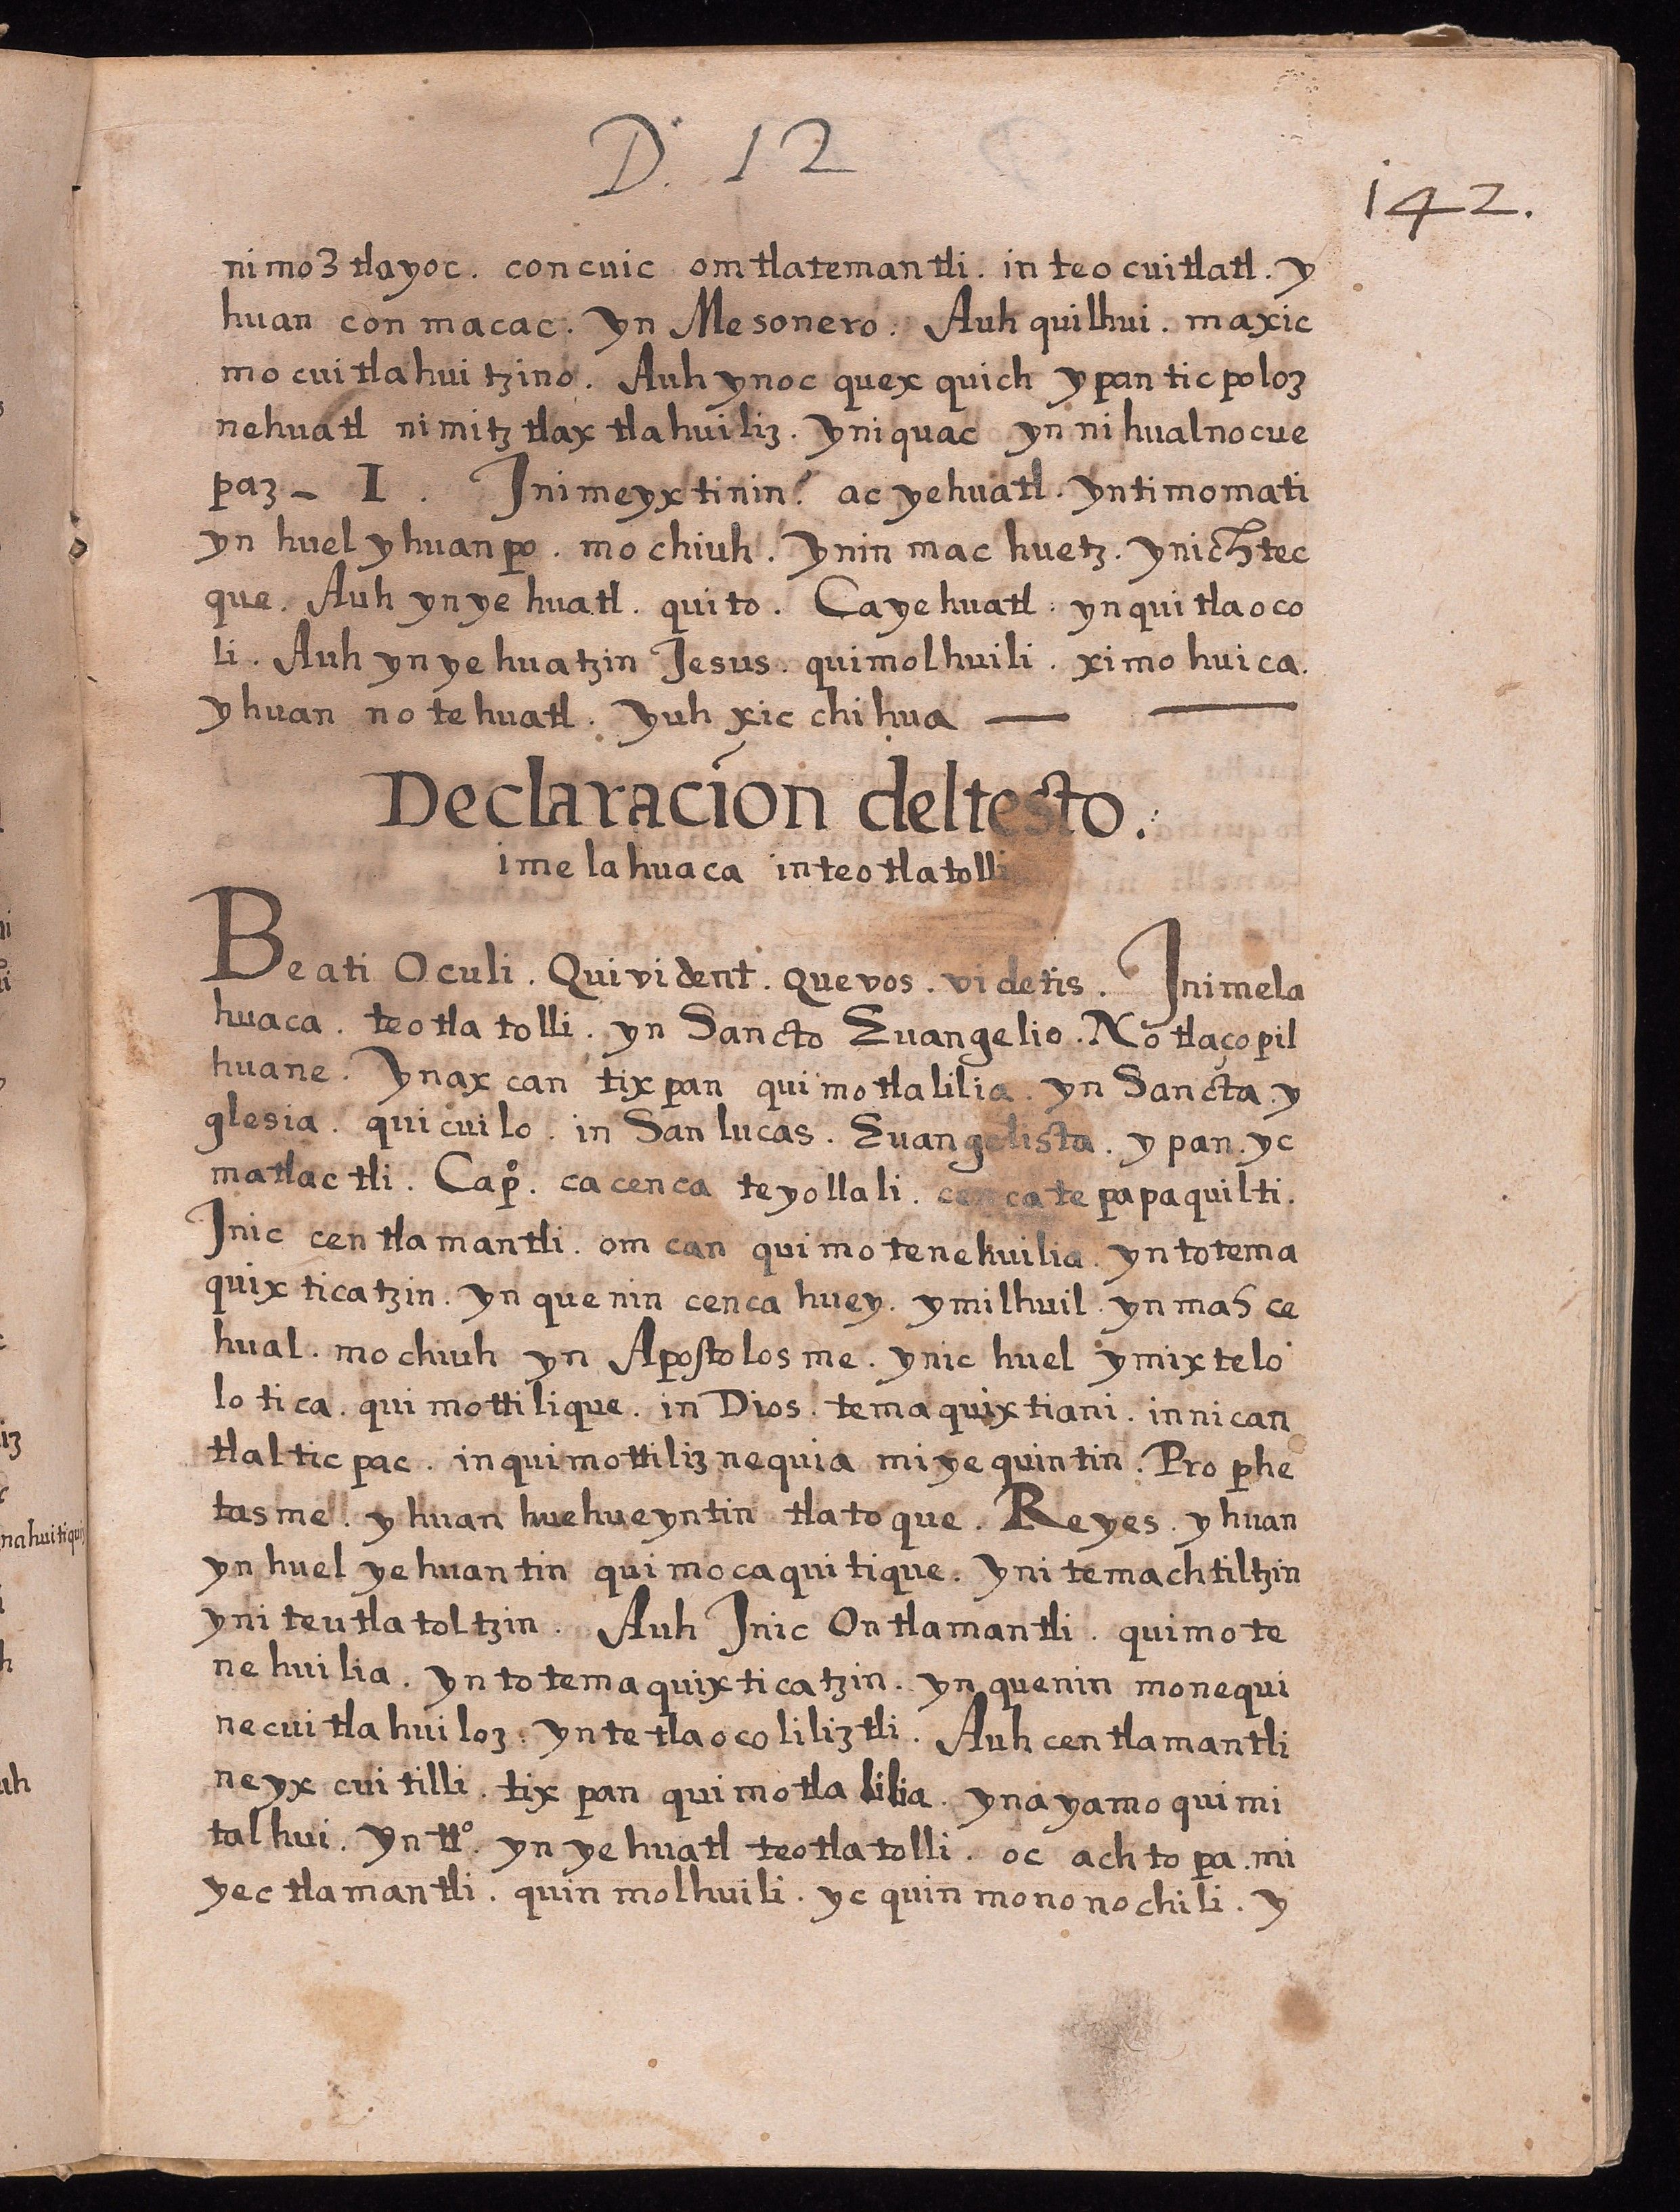 D. 12
142.
nimoztlayoc. concuic omtlatemantli. in teocuitlatl. y
huan conmacac. yn Mesonero. Auh quilhui. maxic
mocuitlahuitzino. Auh ynoc quexquich ypan ticpoloz
nehuatl nimitztlaxtlahuiliz. yniquac yn nihualnocue
paz - I. Inimeyxtinin? ac yehuatl. yntimomati
yn huel yhuanpo. mochiuh. ynin mac huetz. ynichtec
que. Auh yn yehuatl. quito. Ca yehuatl. ynquitlaoco
li. Auh yn yehuatzin Jesus. quimolhuili. ximohuica.
yhuan no tehuatl. yuh xicchihua — —
Declaracion deltesto.
imelahuaca inteotlatolli
Beati Oculi. Qui vident. que vos. videtis. Inimela
huaca. teotlatolli. yn Sancto Euangelio. Notlaçopil
huane. Ynaxcan tixpan quimotlalilia. yn Sancta. y
glesia. quicuilo. in San lucas. Euangelista. ypan. yc
matlactli. Capº. ca cenca teyollali. cenca tepapaquilti.
Inic centlamantli. omcan quimotenehuilia. yn totema
quixticatzin. yn quenin cenca huey. ymilhuil. yn mahce
hual. mochiuh yn Apostolosme. ynic huel ymixtelo
lotica. quimottilique. in Dios. temaquixtiani. in nican
tlalticpac. inquimottiliznequia miyequintin. Prophe
tasme. yhuan huehueyntin tlatoque. Reyes. yhuan
yn huel yehuantin quimocaquitique. yni temachtiltzin
yni teutlatoltzin. Auh Inic Ontlamantli. quimote
nehuilia. yn totemaquixticatzin. yn quenin monequi
necuitlahuiloz. yn tetlaocoliliztli. Auh centlamantli
neyxcuitilli. tixpan quimotlalilia. ynayamo quimi
talhui. Yn ttº. yn yehuatl teotlatolli. oc achtopa. mi
yectlamantli. quinmolhuili. yc quinmononochili. y